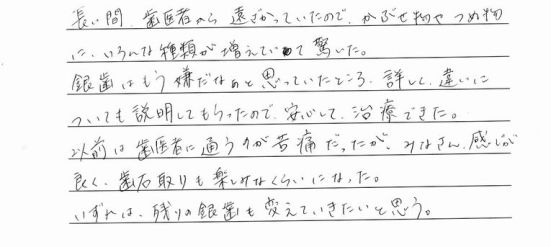 長い間、歯医者から遠ざかっていたので、かぶせ物やつめ物
に、いろんな種類が増えていて驚いた。
銀歯はもう嫌だなぁと思っていたところ、詳しく、違いに
ついても説明してもらったので、安心して、治療できた。
以前は歯医者に通うのが苦痛だったが、みなさん、感じが
良く、歯石取りも楽しみなくらいになった。
いずれは、残りの銀歯も変えていきたいと思う。